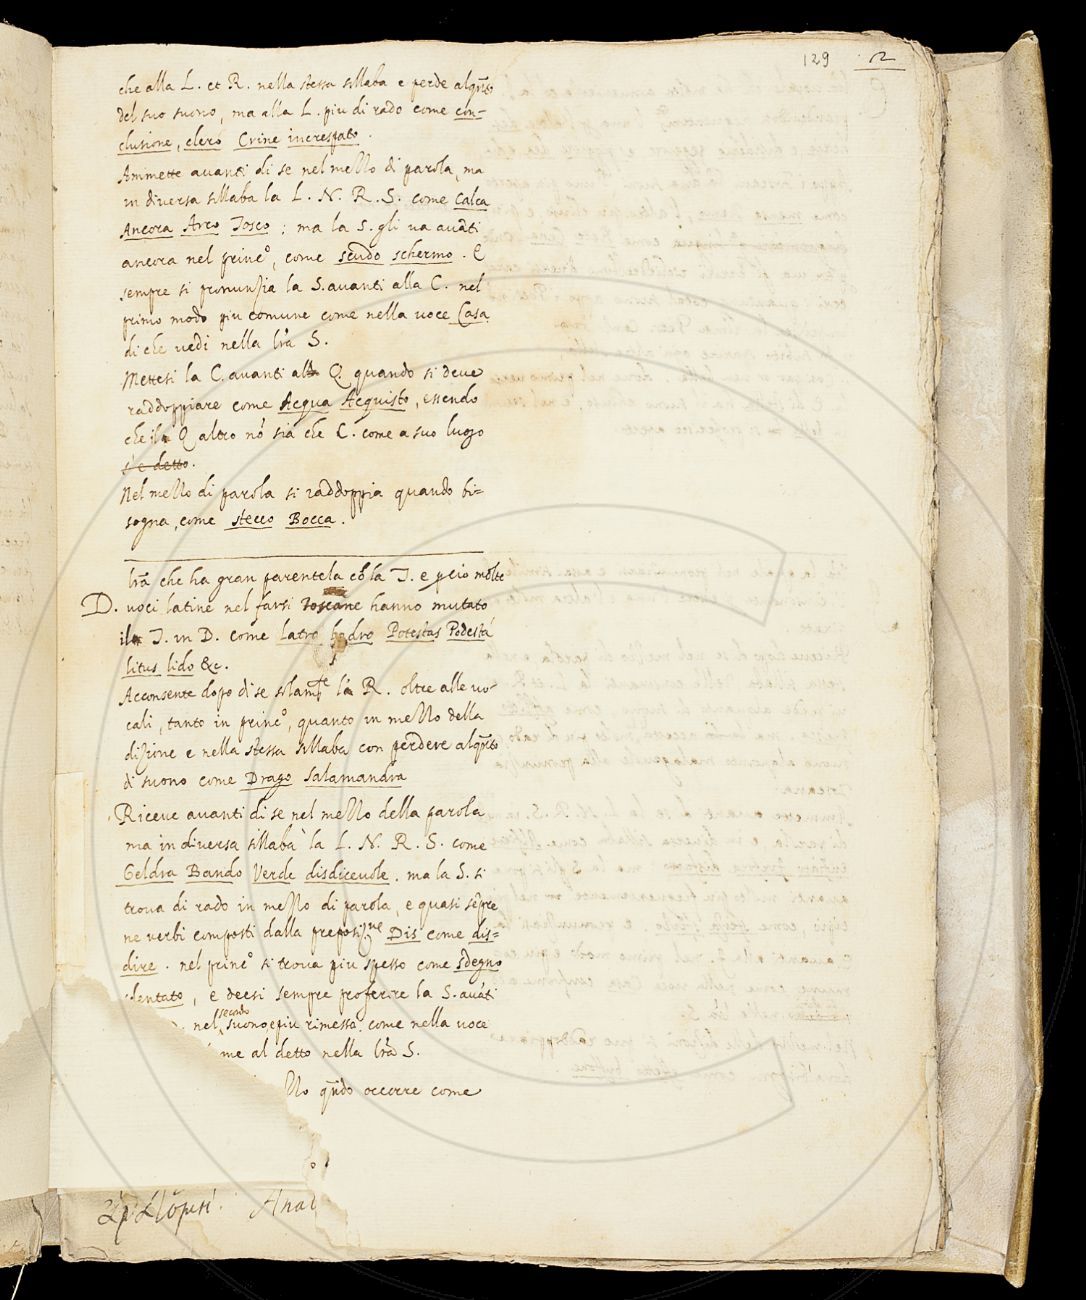 129 2
che alla L. et R. nella stessa sillaba e perde alqto
del suo suono, ma alla L. piu di rado come con-
clusione, clero Crine increspato.
Ammette avanti di se nel mezzo di parola, ma
in diversa sillaba la L. N. R. S. come Calca
Ancora Arco Tosco; ma la S. gli va avāti
ancora nel princº, come scudo schermo. E
sempre si pronunzia la S. avanti alla C. nel
primo modo piu comune come nella voce Casa
di che vedi nella lrā S.
Mettesi la C. avanti alla Q. quando si deve
raddoppiare come Acqua Acquisto, essendo
che il Q altro nō sia che C. come a suo luogo
s'è detto.
Nel mezzo di parola si raddoppia quando bi=
sogna, come stecco Bocca.
lrā che ha gran parentela cō la T. e pciò molte
D. voci latine nel farsi Toscane hanno mutato
il T. in D. come Latro ladro Potestas Podestà
litus lido &c.
Acconsente dopo di se solamte la R. oltre alle vo-
cali, tanto in princº, quanto in mezzo della
dizione e nella stessa sillaba con perdere alqto
di suono come Drago Salamandra
Riceve avanti di se nel mezzo della parola
ma in diversa sillaba la L. N. R. S. come
Geldra Bando Verde disdicevole. ma la S. si
trova di rado in mezzo di parola, e quasi sēpre
ne verbi composti dalla preposizne Dis come dis=
dire. nel princº si trova piu spesso come sdegno
sdentato, e deesi sempre proferire la S. avāti
D. nel secondo suono, e piu rimessa come nella voce
me al detto nella lrā S.
zzo qñdo occorre come